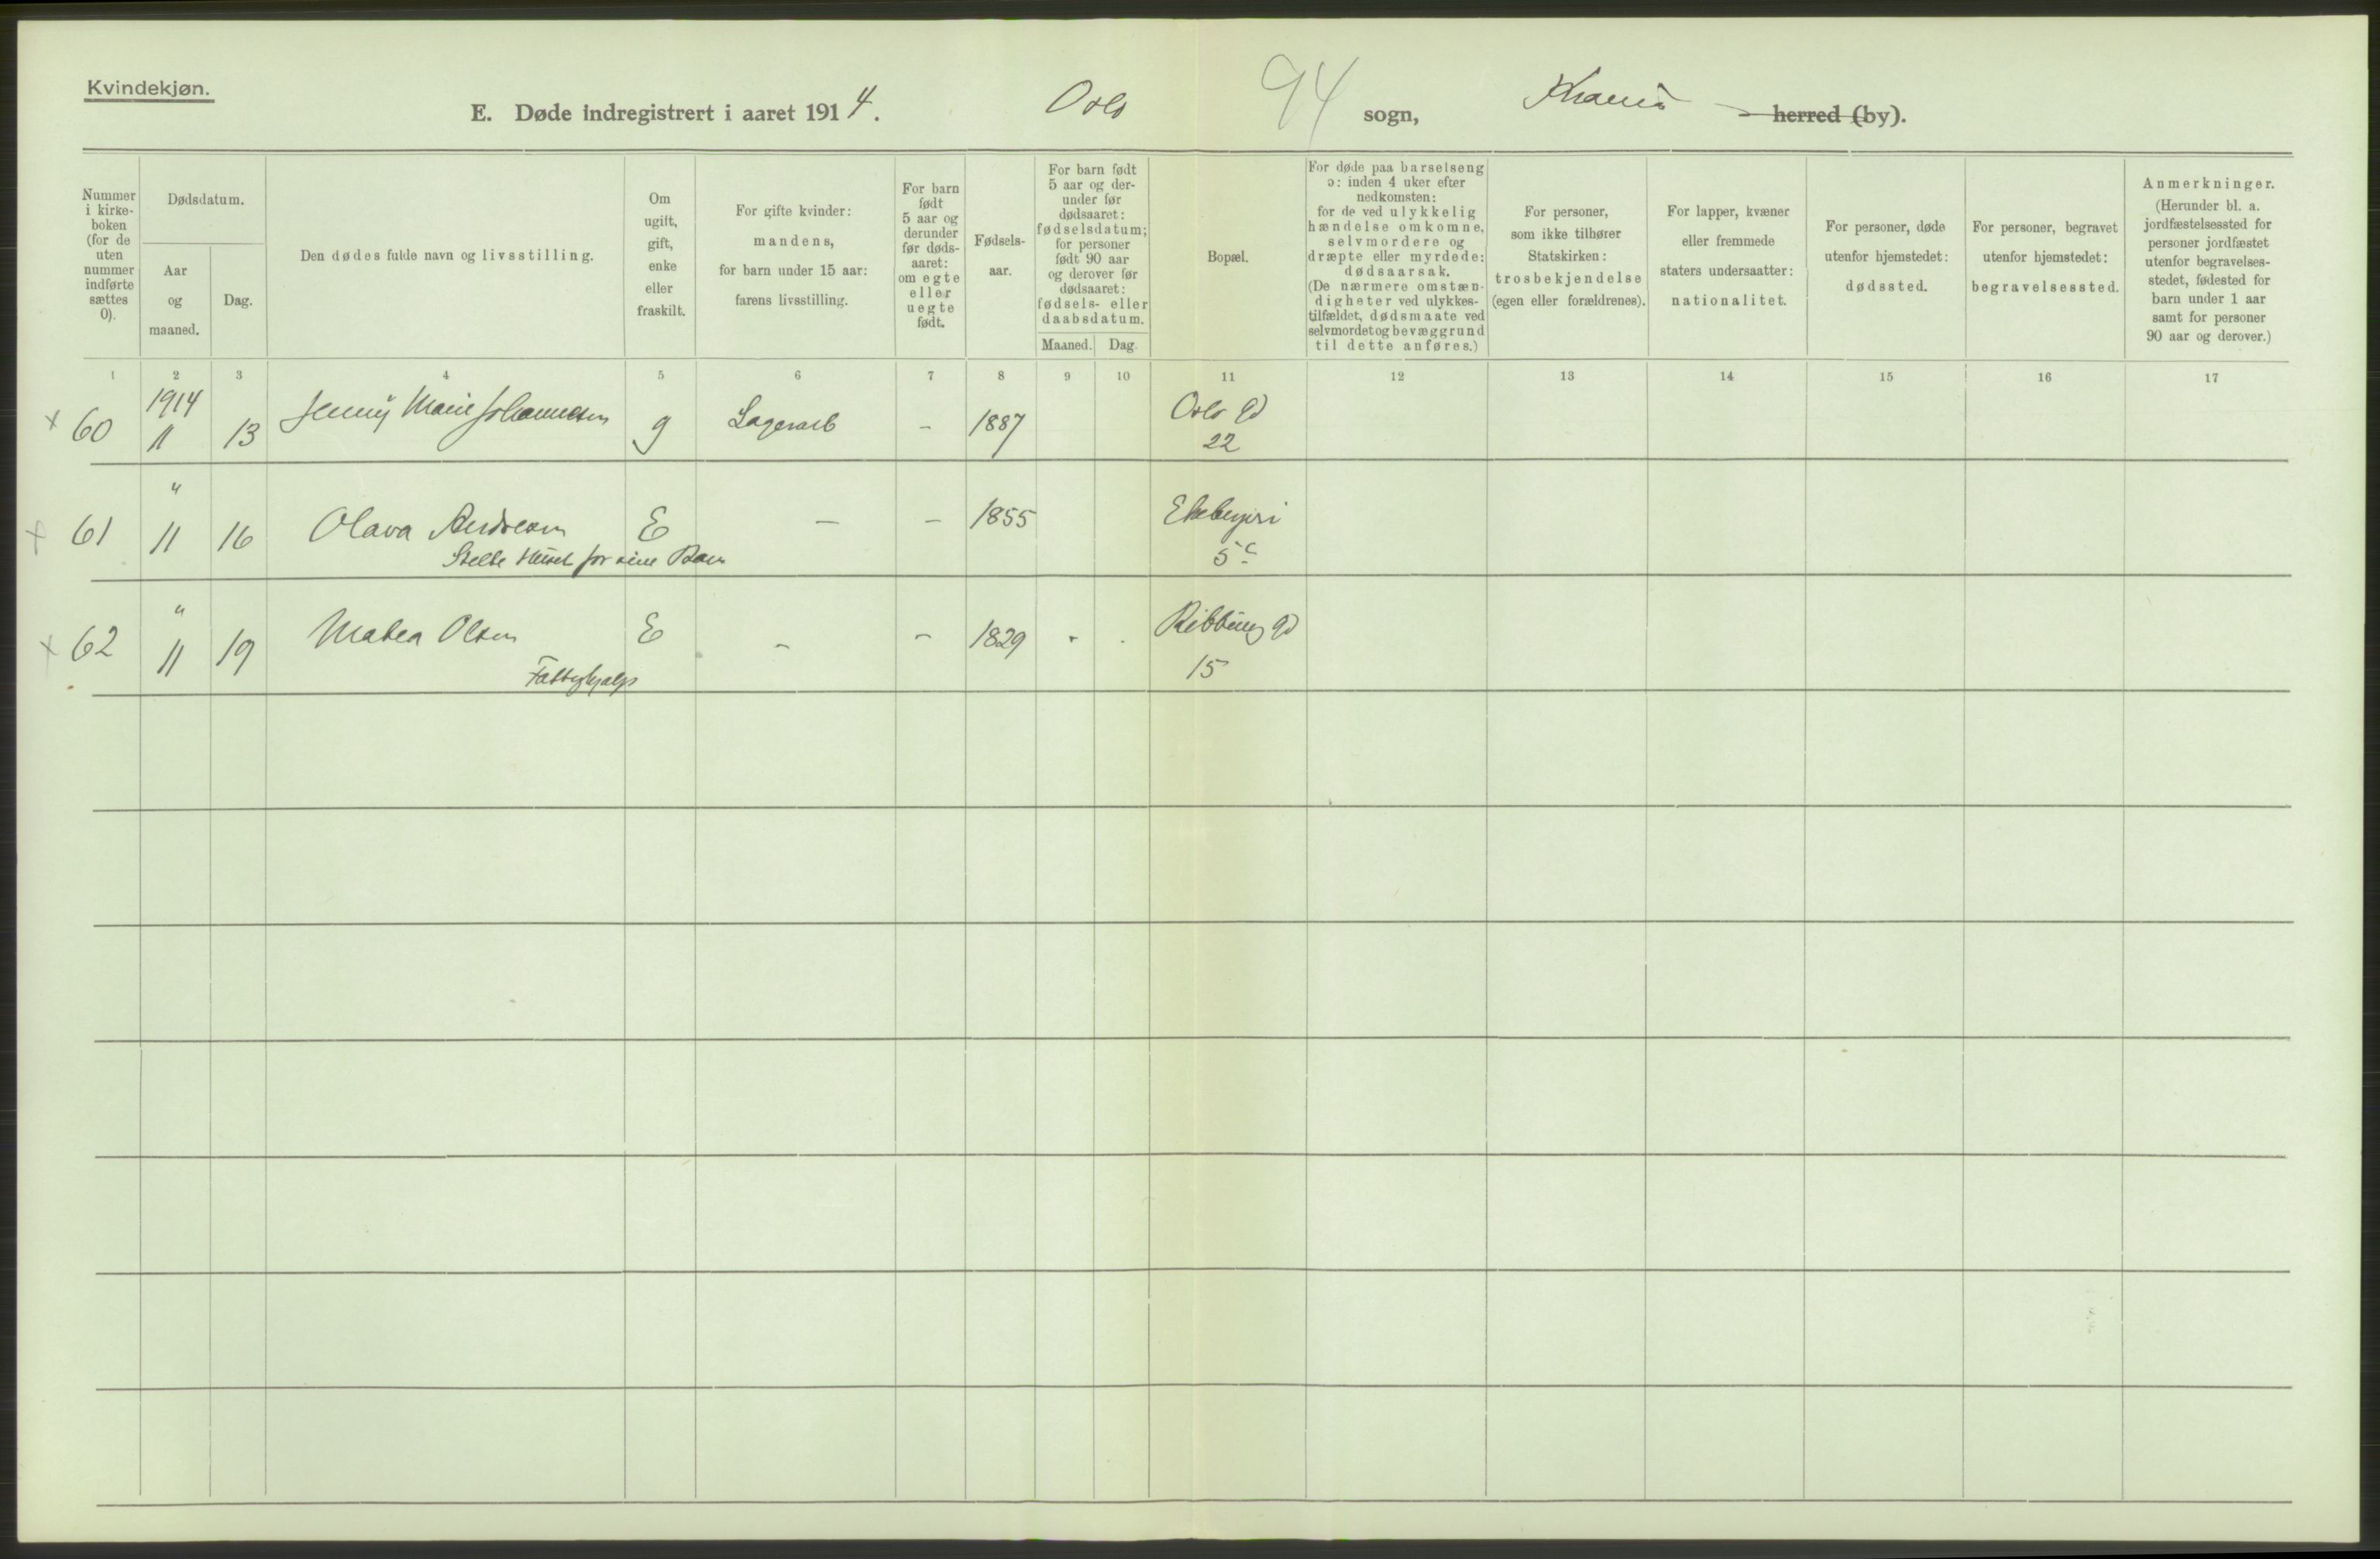 Kvindekjøn.
E. Døde indregistrert i aaret 1914. Oslo sogn, herred (by).
94
Nummer
i kirke-
boken
(for de
uten
nummer
indførte
sættes
0).
Dødsdatum.
Aar
og
maaned.
Dag.
Den dødes fulde navn og livsstilling.
Om
ugift,
gift,
enke
eller
fraskilt.
For gifte kvinder:
mandens,
for barn under 15 aar:
farens livsstilling.
For barn
født
5 aar og
derunder
før døds-
aaret:
om egte
eller
uegte
født.
Fødsels-
aar.
For barn født
5 aar og der-
under før
dødsaaret:
fødselsdatum;
for personer
født 90 aar
og derover før
dødsaaret:
fødsels- eller
daabsdatum.
Maaned. Dag.
Bopæl.
For døde paa barselseng
ɔ: inden 4 uker efter
nedkomsten:
for de ved ulykkelig
hændelse omkomne,
selvmordere og
dræpte eller myrdede:
dødsaarsak.
(De nærmere omstæn-
digheter ved ulykkes-
tilfældet, dødsmaate ved
selvmordet og bevæggrund
til dette anføres.)
For personer,
som ikke tilhører
Statskirken:
trosbekjendelse
(egen eller forældrenes).
For lapper, kvæner
eller fremmede
staters undersaatter:
nationalitet.
For personer, døde
utenfor hjemstedet:
dødssted.
For personer, begravet
utenfor hjemstedet:
begravelsessted.
Anmerkninger.
(Herunder bl. a.
jordfæstelsessted for
personer jordfæstet
utenfor begravelses-
stedet, fødested for
barn under 1 aar
samt for personer
90 aar og derover.)
1 2 3 4 5 6 7 8 9 10 11 12 13 14 15 16 17
1914
× 60 11 13 Jenny Marie Johannesen g Lagerarb - 1887 Oslo gd
22
"
× 61 11 16 Olava Andresen E - - 1855
Stelte Huset for sine Barn 5 c
"
× 62 11 19 Mathea Olsen E - - 1829 Ribbung gd
Fattighjælp 15